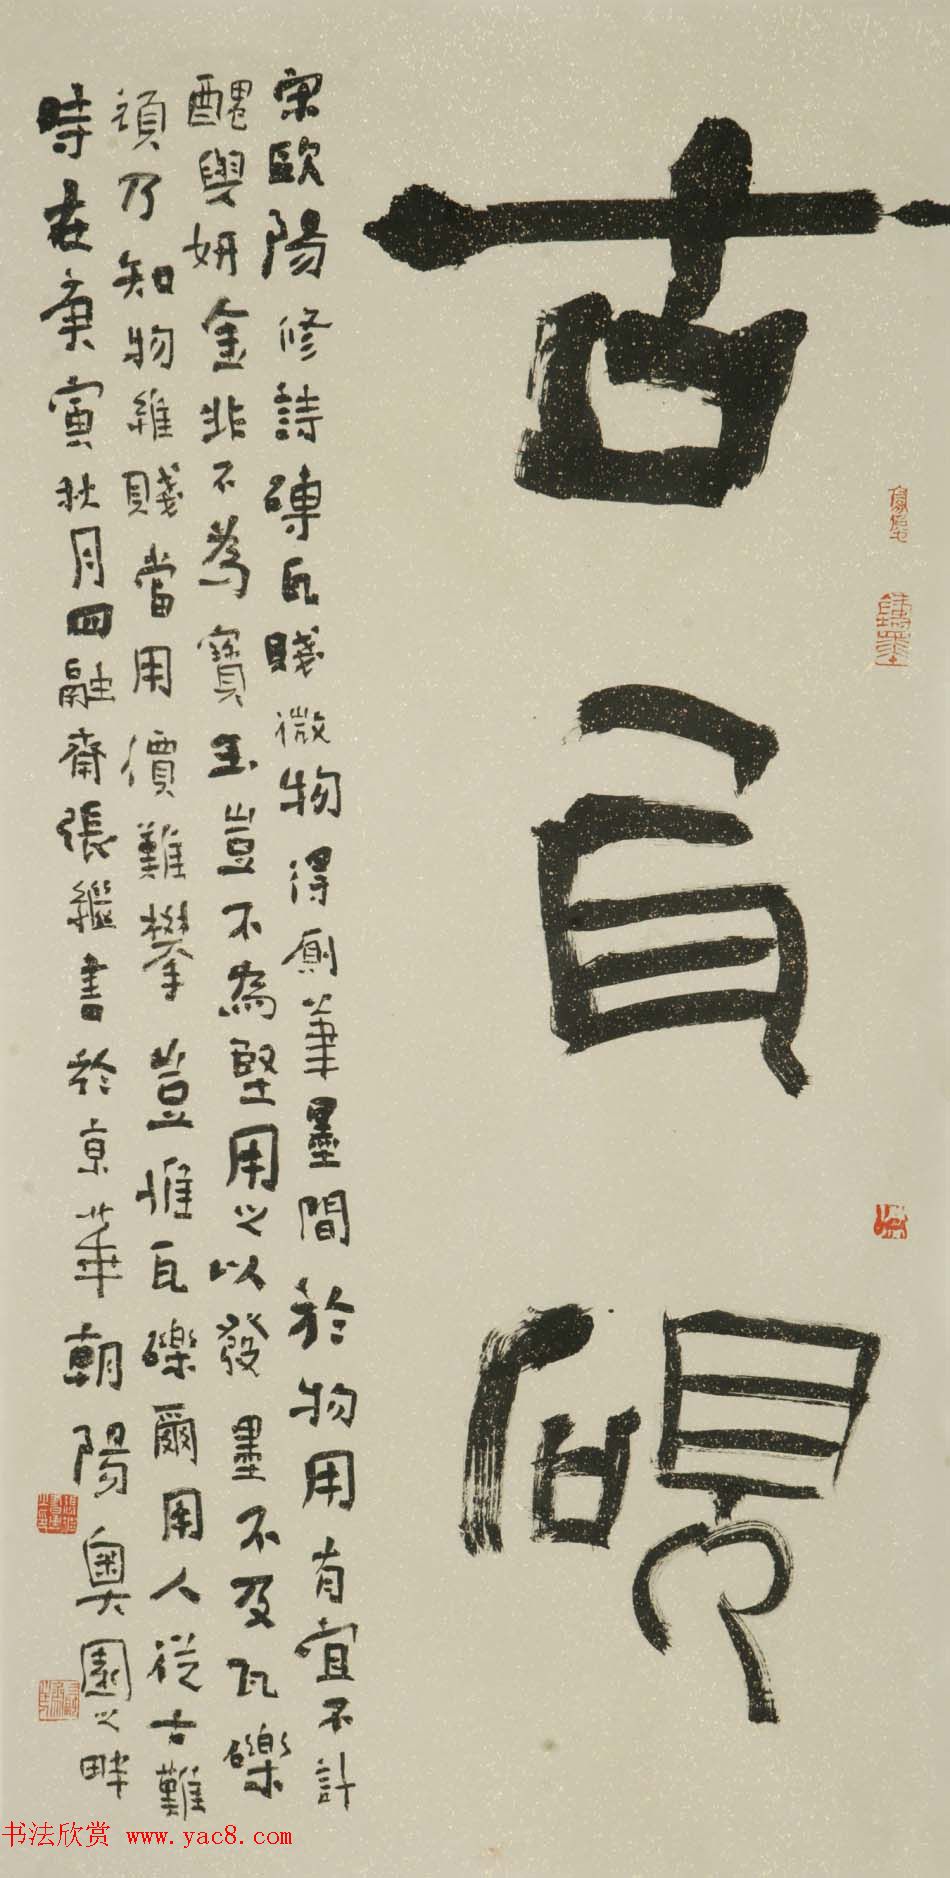 古瓦硯
宋歐陽修詩磚瓦賤微物得廁筆墨間於物用有宜不計
醜與妍金非不為寶玉豈不為堅用之以發墨不及瓦礫
頑乃知物雖賤當用價難攀豈惟瓦礫爾用人從古難
時在庚寅秋月四融齋張繼書於京華朝陽奧園之畔
书法欣赏 www.yac8.com